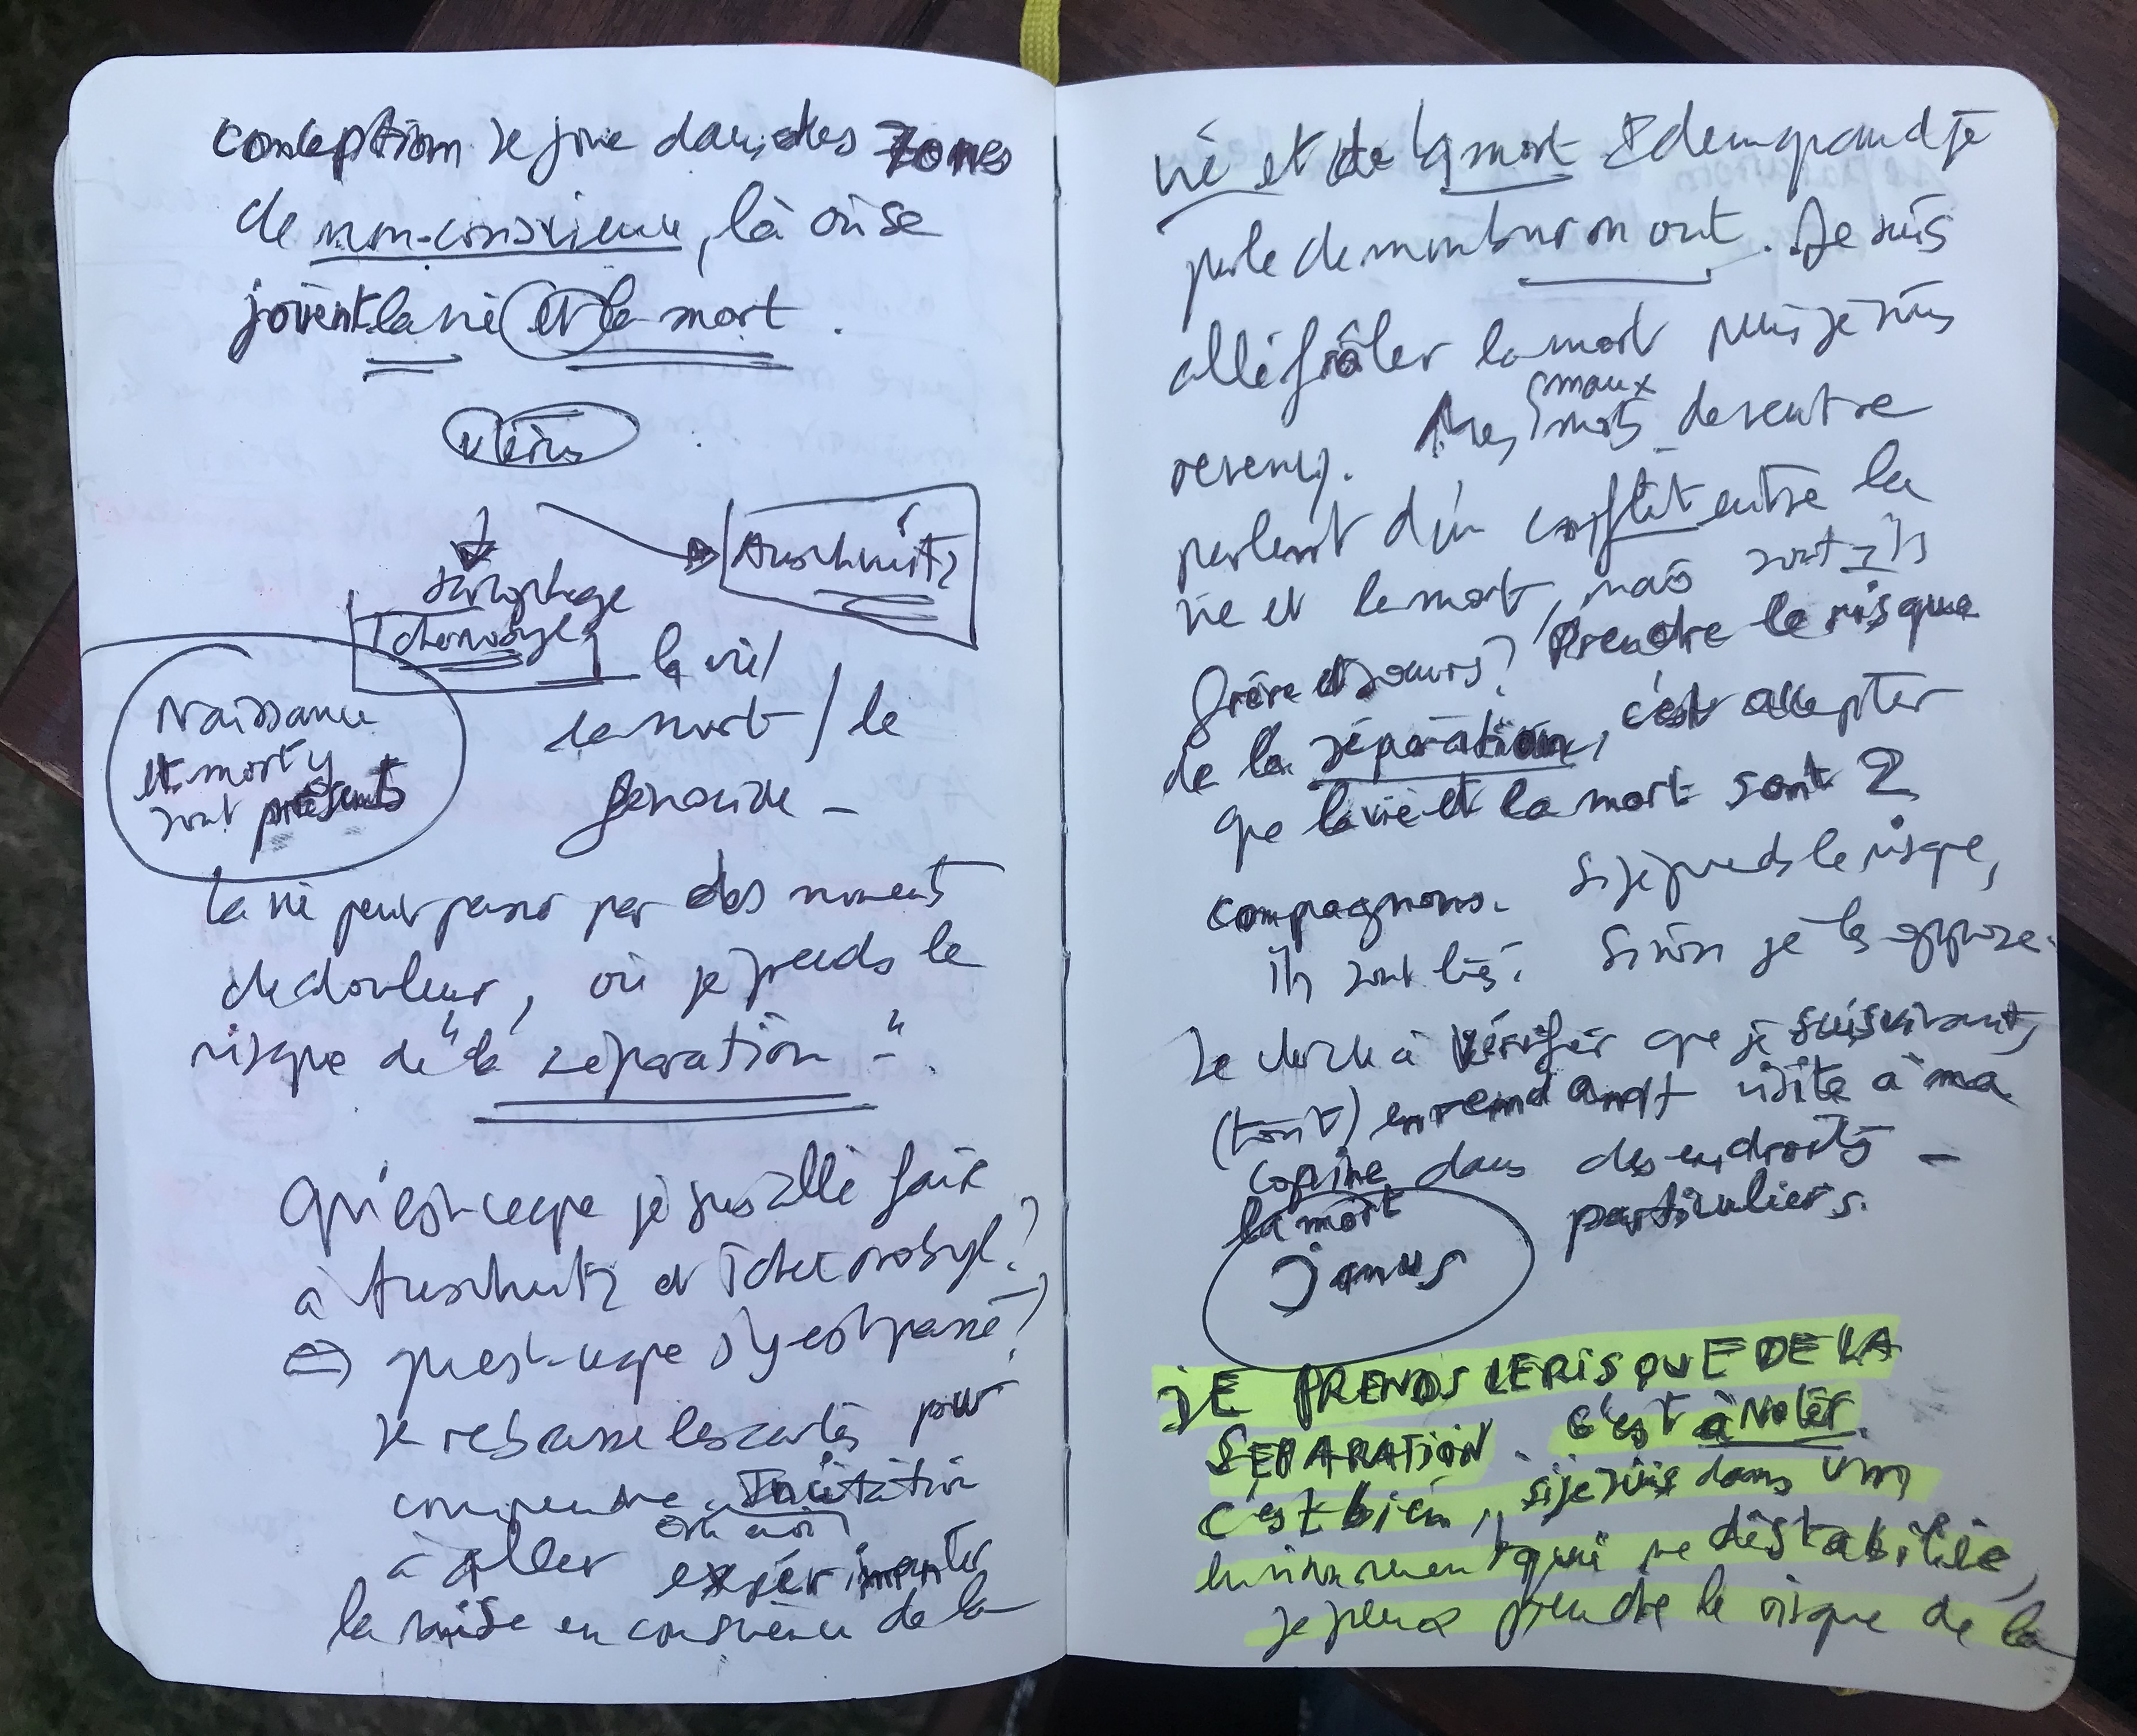 conception se joue dans des zones
de non-conscience, là où se
jouent la vie et la mort.
utérus
sarcophage
Auschwitz
Tchernobyl
la vie /
la mort / le
génocide -
Naissance
et mort y
sont présents
la vie peut passer par des moments
de douleur, où je prends le
risque de "la séparation".
Qu'est-ce que je suis allé faire
à Auschwitz et Tchernobyl ?
qu'est-ce que s'y est passé ?
Je rebrasse les cartes pour
comprendre Incitation
à aller expérimenter
la mise en conscience de la
vie et de la mort & demandje
parle de mon burn out. Je suis
allé frôler la mort puis je suis
revenu. Mes maux
mots de ventre
parlent d'un conflit entre la
vie et la mort, mais sont-ils
frère et sœurs ? Prendre le risque
de la séparation, c'est accepter
que la vie et la mort sont 2
compagnons. Si je prends le risque,
ils sont liés. Sinon je les oppose.
Je cherche à vérifier que je suis vivant,
(tout) en rendant visite à ma
copine dans des endroits -
la mort particuliers.
Janus
JE PRENDS LE RISQUE DE LA
SEPARATION. C'est à Noter.
C'est bien, si je suis dans un
environnement qui me déstabilise,
je peux prendre le risque de la